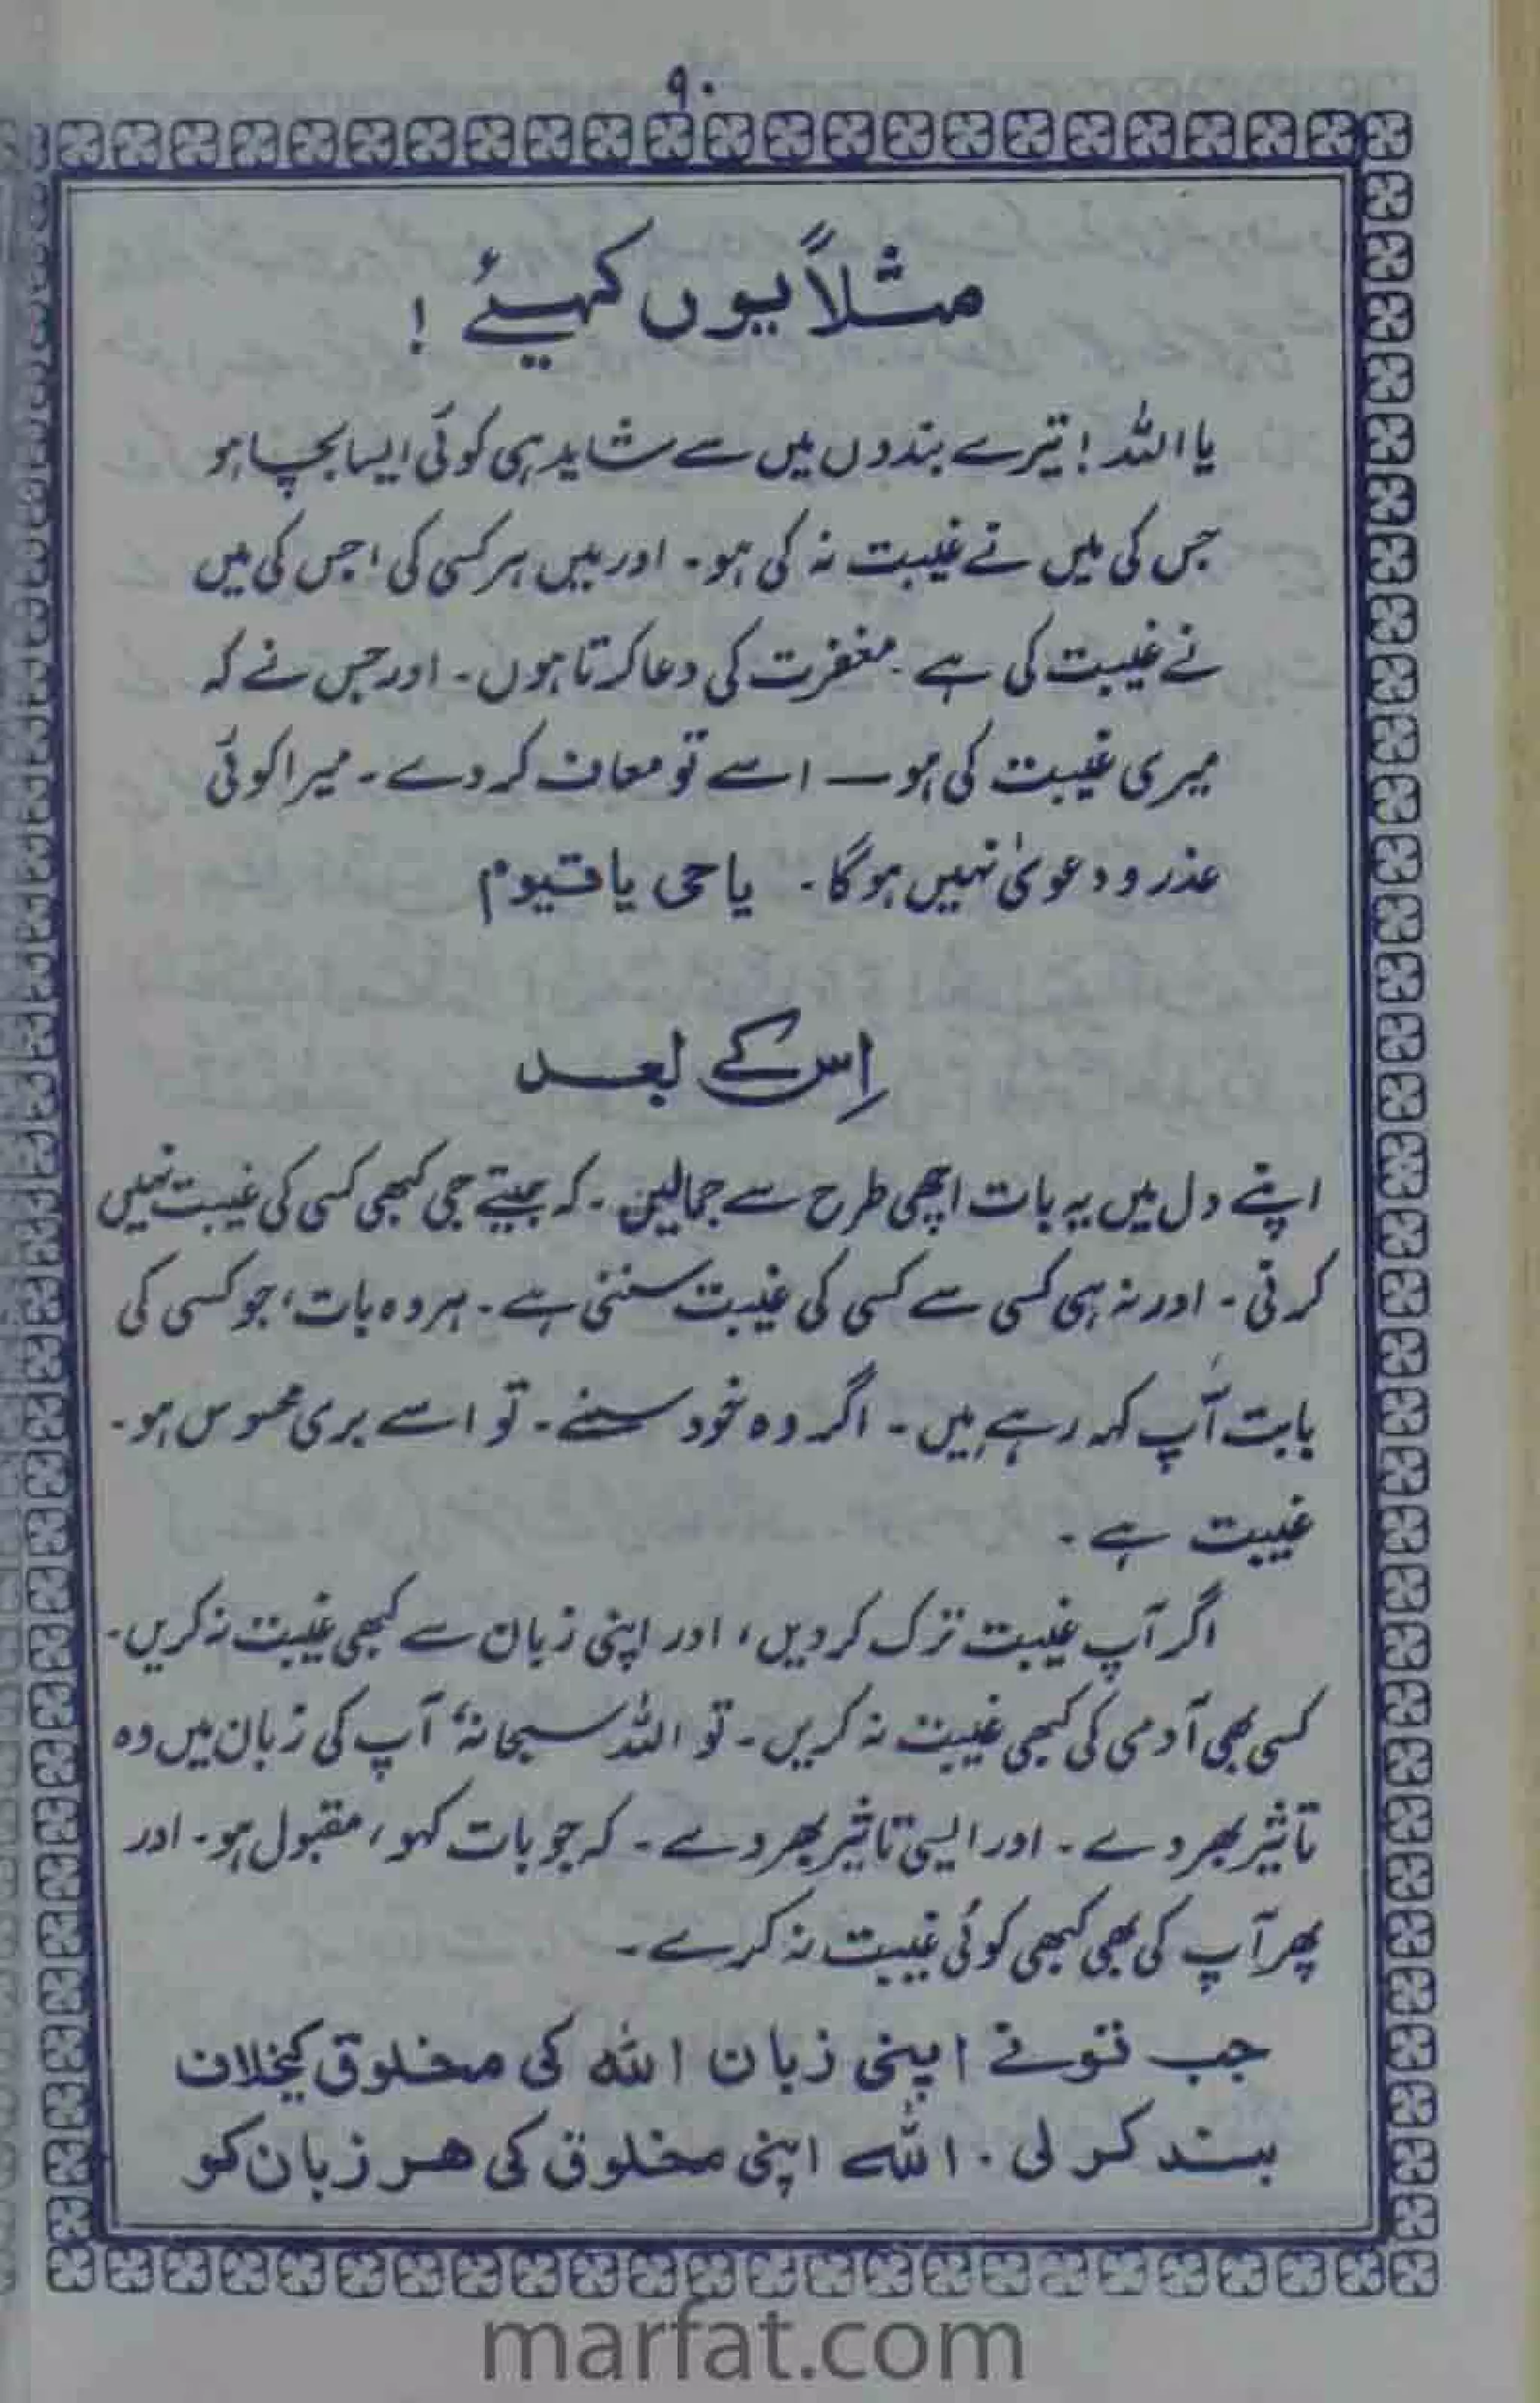 ۹۰
مثلاً یوں کہیئے !
یا اللہ ! تیرے بندوں میں سے شاید ہی کوئی ایسا بچا ہو
جس کی میں نے غیبت نہ کی ہو۔ اور میں ہر کسی کی ، جس کی میں
نے غیبت کی ہے ۔ مغفرت کی دعا کرتا ہوں۔ اور جس نے کہ
میری غیبت کی ہو ــ اسے تو معاف کر دے ۔ میرا کوئی
عذر و دعویٰ نہیں ہوگا ۔ یا حی یا قیوم
اِس کے بعد
اپنے دل میں یہ بات اچھی طرح سے جمالیں ۔ کہ جیتے جی کبھی کسی کی غیبت نہیں
کرنی ۔ اور نہ ہی کسی سے کسی کی غیبت سننی ہے ۔ ہر وہ بات ، جو کسی کی
بابت آپ کہہ رہے ہیں ۔ اگر وہ خود سنے ۔ تو اسے بری محسوس ہو ۔
غیبت ہے ۔
اگر آپ غیبت ترک کر دیں ، اور اپنی زبان سے کبھی غیبت نہ کریں ۔
کسی بھی آدمی کی کبھی غیبت نہ کریں ۔ تو اللہ سبحانہٗ آپ کی زبان میں وہ
تاثیر بھر دے ۔ اور ایسی تاثیر بھر دے ۔ کہ جو بات کہو ، مقبول ہو ۔ اور
پھر آپ کی بھی کبھی کوئی غیبت نہ کرے ۔
جب تونے اپنی زبان اللہ کی مخلوق کیخلاف
بند کر لی ۔ اللہ اپنی مخلوق کی ہر زبان کو
marfat.com